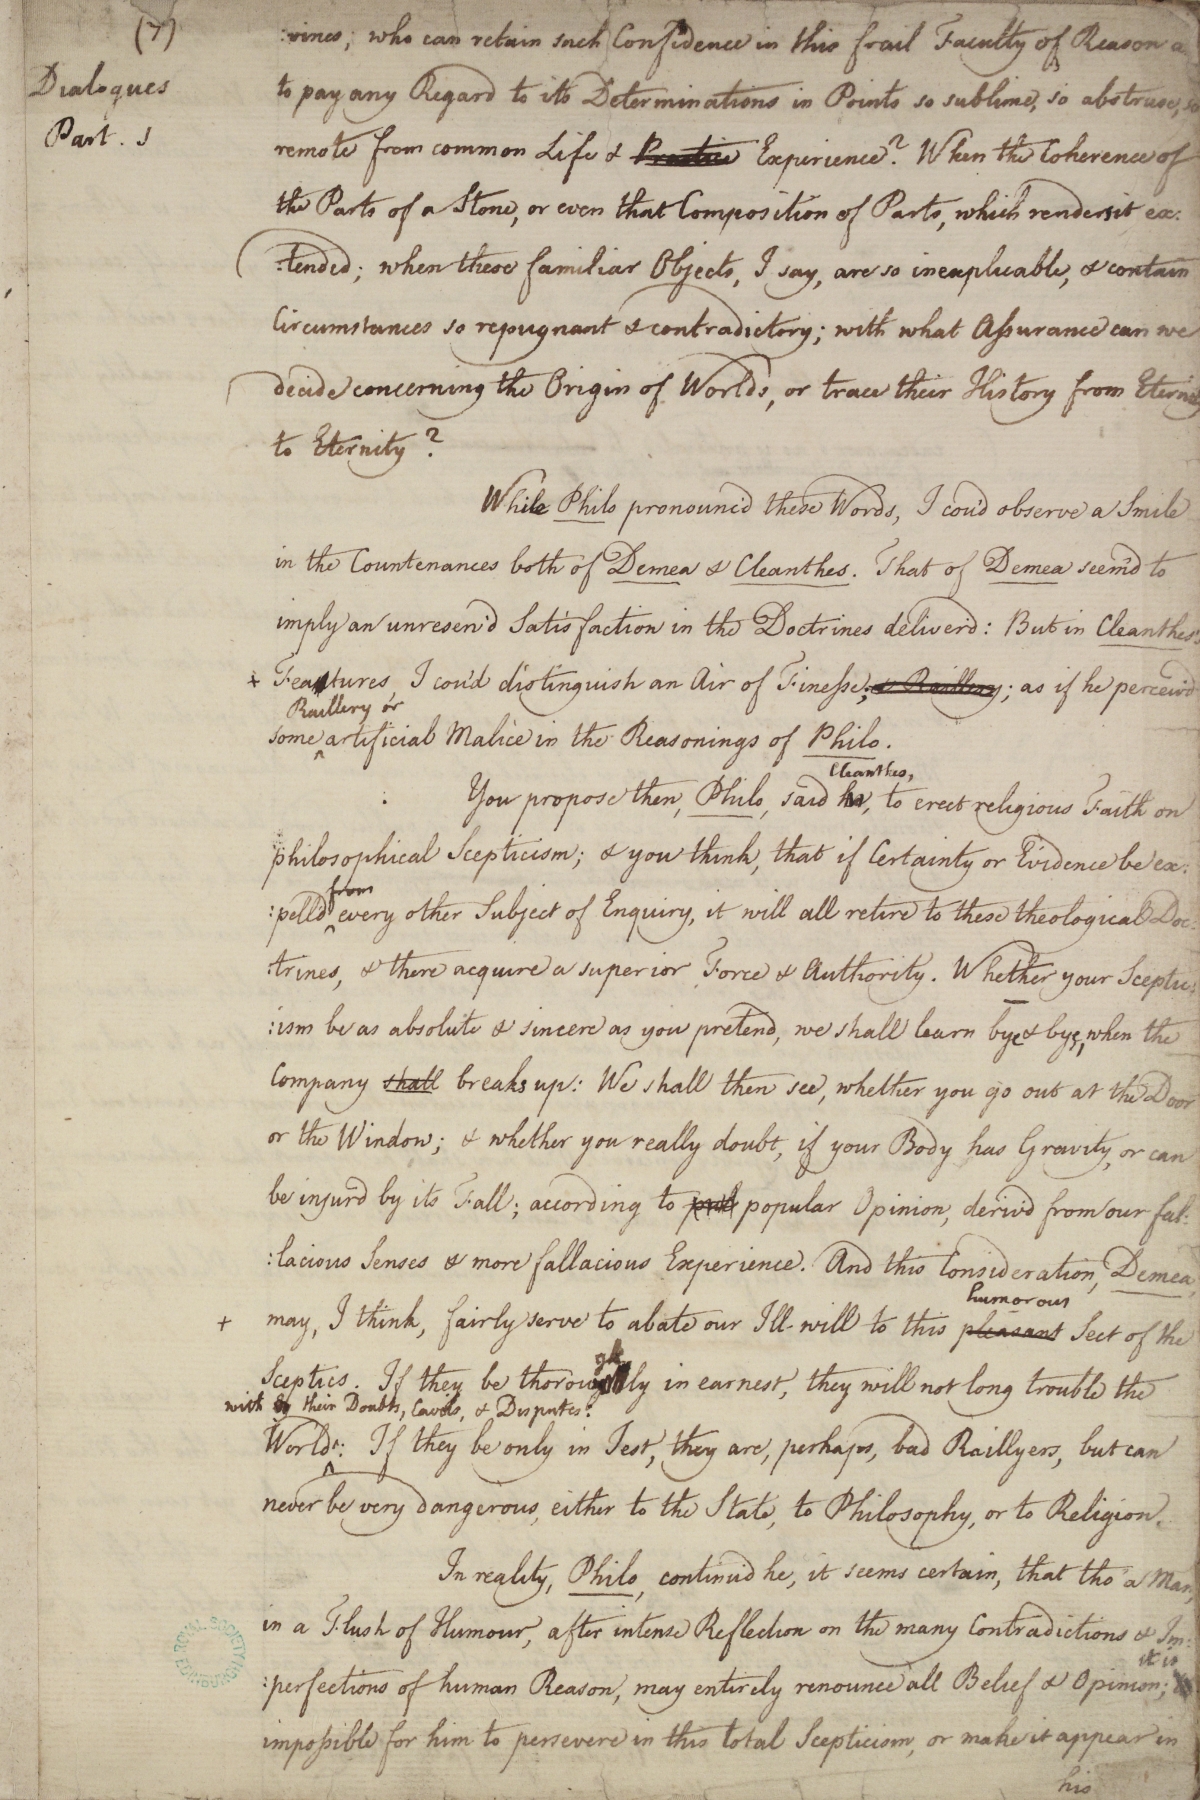 (7)
Dialogues
Part. 1
:vines; who can retain such Confidence in this frail Faculty of Reason a
to pay any Regard to its Determinations in Points so sublime, so abstruse, so
remote from common Life & Practice Experience? When the Coherence of
the Parts of a Stone, or even that Composition of Parts, which renders it ex:
:tended; when these familiar Objects, I say, are so inexplicable, & contain
Circumstances so repugnant & contradictory; with what Assurance can we
decide concerning the Origin of Worlds, or trace their History from Eternity
to Eternity?
While Philo pronounc'd these Words, I cou'd observe a Smile
in the Countenances both of Demea & Cleanthes. That of Demea seem'd to
imply an unreserv'd Satisfaction in the Doctrines deliver'd: But in Cleanthes's
+ Features, I cou'd distinguish an Air of Finesse; & Raillery; as if he perceiv'd
Raillery or
some ^ artificial Malice in the Reasonings of Philo.
Cleanthes,
You propose then, Philo, said he, to erect religious Faith on
philosophical Scepticism; & you think, that if Certainty or Evidence be ex:
from
:pelld ^ every other Subject of Enquiry, it will all retire to these theological Doc:
:trines, & there acquire a superior Force & Authority. Whether your Sceptic:
:ism be as absolute & sincere as you pretend, we shall learn bye & bye, when the
Company shall breaks up: We shall then see, whether you go out at the Door
or the Window; & whether you really doubt, if your Body has Gravity, or can
be injurd by its Fall; according to popular Opinion, deriv'd from our fal:
:lacious Senses & more fallacious Experience. And this Consideration, Demea,
humorous
+ may, I think, fairly serve to abate our Ill-will to this pleasant Sect of the
gh
Sceptics. If they be thoroughly in earnest, they will not long trouble the
with their Doubts, Cavils, & Disputes:
World ^: If they be only in Jest, they are, perhaps, bad Raillyers, but can
never be very dangerous, either to the State, to Philosophy, or to Religion.
In reality, Philo, continu'd he, it seems certain, that tho' a Man,
in a Flush of Humour, after intense Reflection on the many Contradictions & Im:
it is
:perfections of human Reason, may entirely renounce all Belief & Opinion;
impossible for him to persevere in this total Scepticism, or make it appear in
his
ROYAL SOCIETY